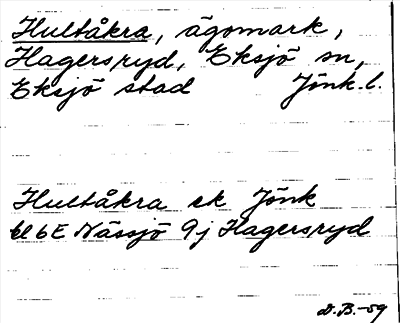 Hultåkra, ägomark,
Hagersryd, Eksjö sn,
Eksjö stad Jönk. l.
Hultåkra ek Jönk
bl 6E Nässjö 9j Hagersryd
D.B.-59